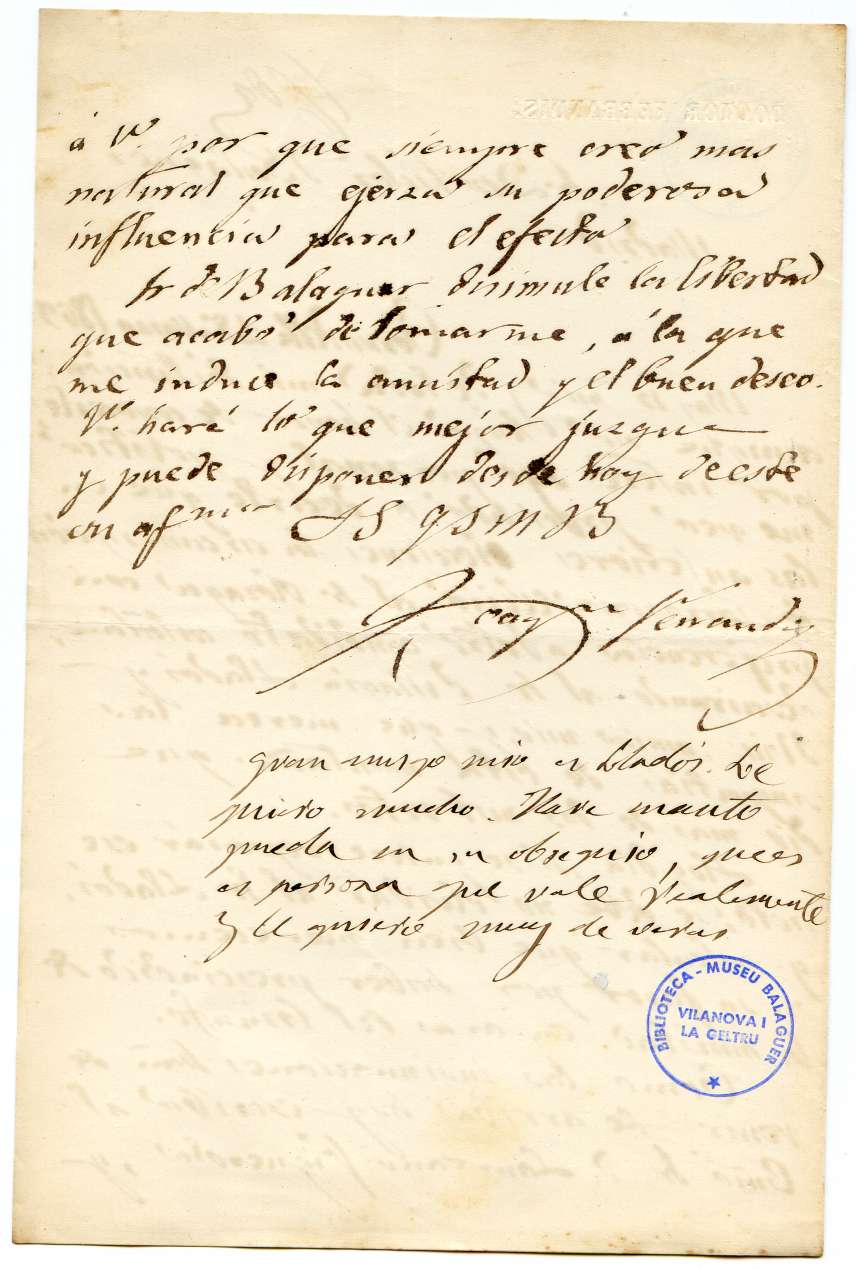 á Vd. por que siempre creo mas
natural que ejerza su poderosa
influencia para el efecto
Sr. de Balaguer disimule la libertad
que acabo de tomarme, á la que
me induce la amistad y el buen deseo.
Vd. hará lo que mejor juzgue
y puede disponer desde hoy de este
su afmo SS q S M B
Joaqn Ferrandiz
gran amigo mio es Lladós. Le
quiero mucho. Hare cuanto
pueda en su obsequio, pues
es persona que vale realmente
y le quiero muy de veras
BIBLIOTECA - MUSEU BALAGUER
VILANOVA I
LA GELTRU